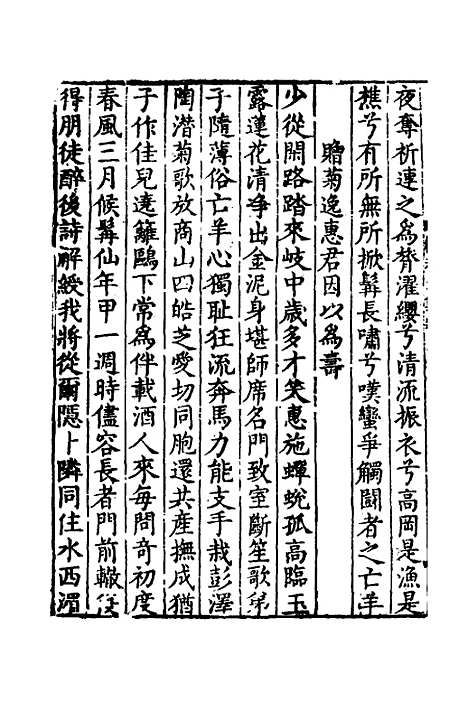 夜奪祈連之為膂濯纓兮清流振衣兮高岡是漁是
樵兮有所無所掀髯長嘯兮嘆蠻爭觸鬪者之亡羊
贈菊逸惠君因以為壽
少從閒路踏來岐中歲多才笑惠施蟬蛻孤高臨玉
露蓮花清爭出金泥身堪師席名門致室斷笙歌弟
子隨薄俗亡羊心獨耻狂流奔馬力能支手栽彭澤
陶潛菊歌放商山四皓芝愛切同胞還共產撫成猶
子作佳兒遶籬鷗下常為伴載酒人來每問奇初度
春風三月候髯仙年甲一週時儘容長者門前轍
得朋徒醉後詩解綬我將從爾隱卜隣同住水西湄